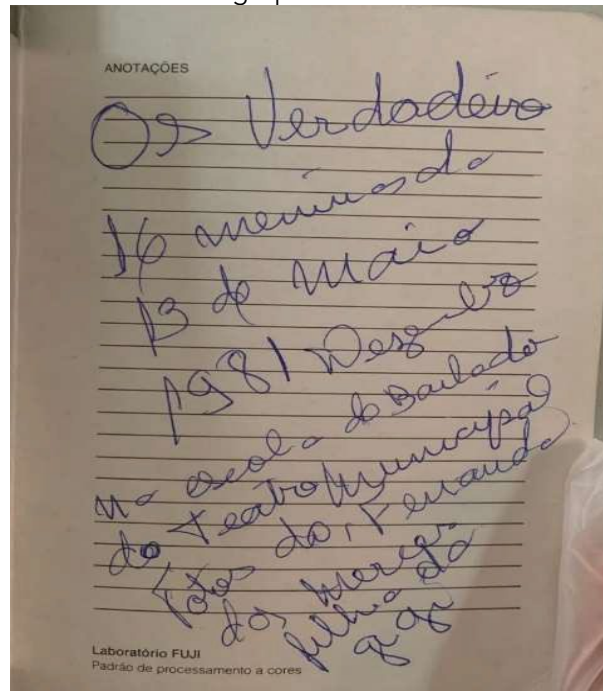 ANOTAÇÕES
Os Verdadeiro
16 meninos do
13 de Maio
1981 Dezembro
na escola do Bailado
do Teatro Municipal
Fotos da, Fernanda
das
filha da
gigi
Laboratório FUJI
Padrão de processamento a cores